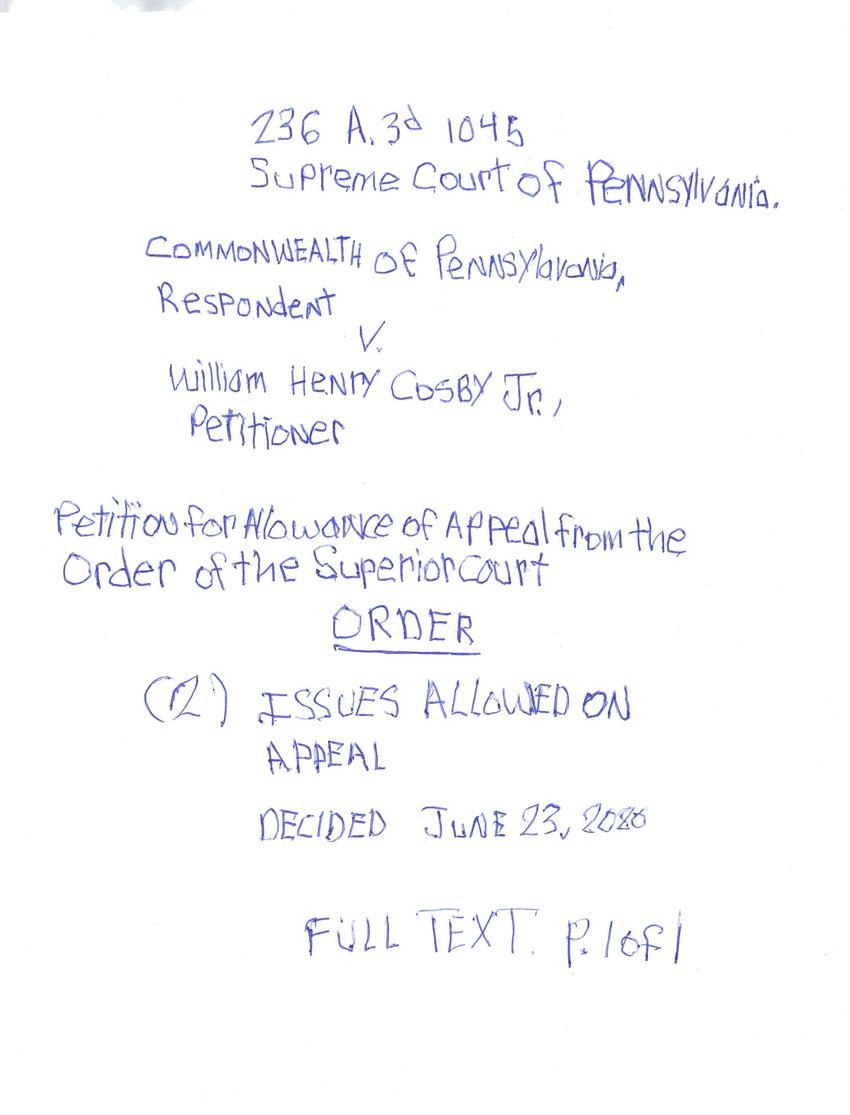 236 A.3d 1045
Supreme Court of Pennsylvania.
COMMONWEALTH of Pennsylavania,
Respondent
V.
William Henry Cosby Jr.,
Petitioner
Petition for Allowance of Appeal from the
Order of the Superior Court
ORDER
(2) ISSUES ALLOWED ON
APPEAL
DECIDED JUNE 23, 2020
FULL TEXT. P. 1 of 1